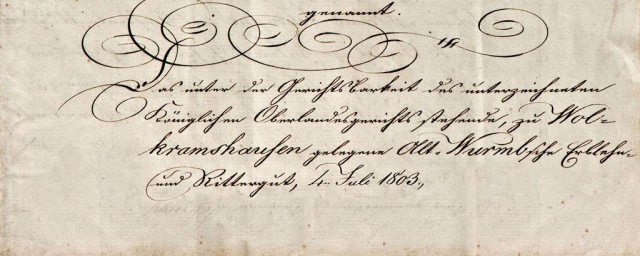 genannt.
Das unter der Gerichtsbarkeit des unterzeichneten
Königlichen Oberlandesgerichts stehende, zu Wol-
kramshausen gelegene Alt-Wurmb'sche Erblehn-
und Rittergut, 4. Juli 1803.,